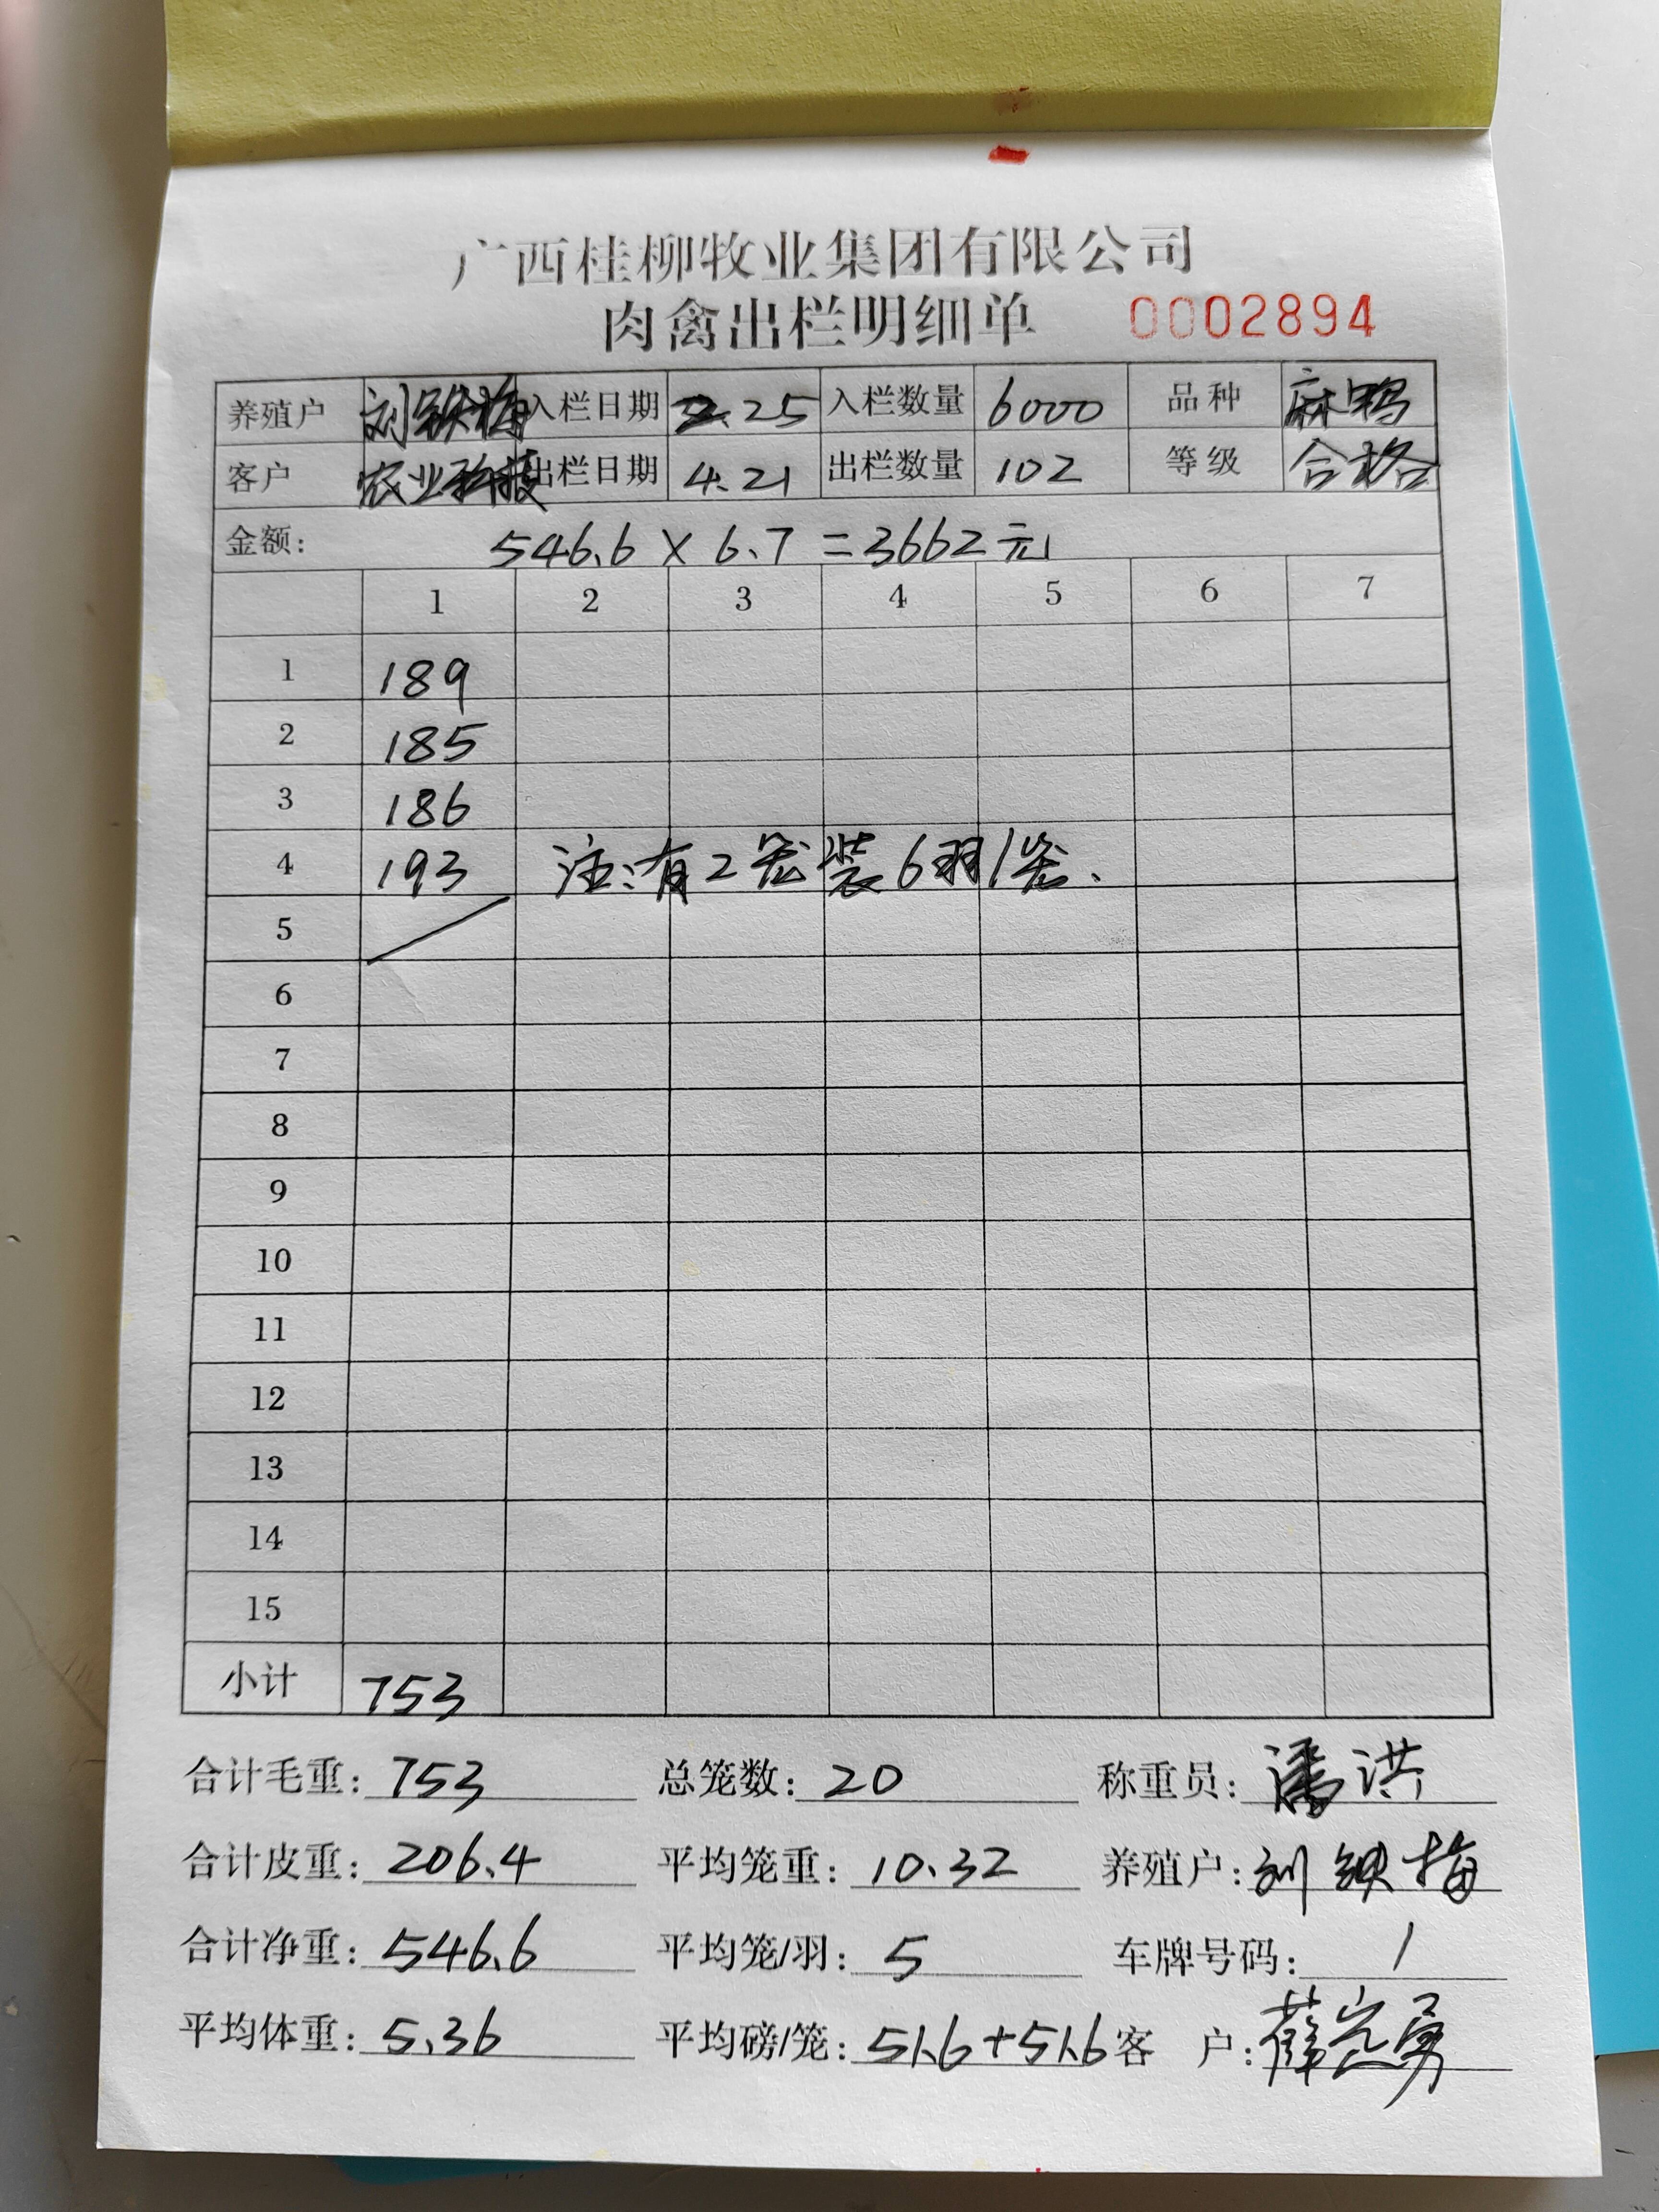 广西桂柳牧业集团有限公司
肉禽出栏明细单 0002894
养殖户 刘铁梅 入栏日期 2.25 入栏数量 6000 品种 麻鸭
客户 农业科技 出栏日期 4.21 出栏数量 102 等级 合格
金额: 546.6 × 6.7 = 3662元
1 2 3 4 5 6 7
1 189
2 185
3 186
4 193 注:有2笼装6羽1笼、
5
6
7
8
9
10
11
12
13
14
15
小计 753
合计毛重: 753 总笼数: 20 称重员: 潘洪
合计皮重: 206.4 平均笼重: 10.32 养殖户: 刘铁梅
合计净重: 546.6 平均笼/羽: 5 车牌号码: 1
平均体重: 5.36 平均磅/笼: 51.6+51.6 客 户: 薛